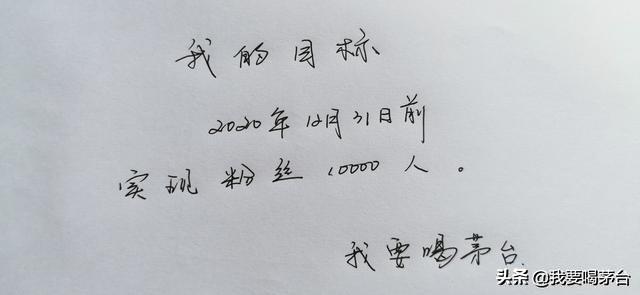 我的目标
2020年12月31日前
实现粉丝10000人。
我要喝茅台
头条 @我要喝茅台